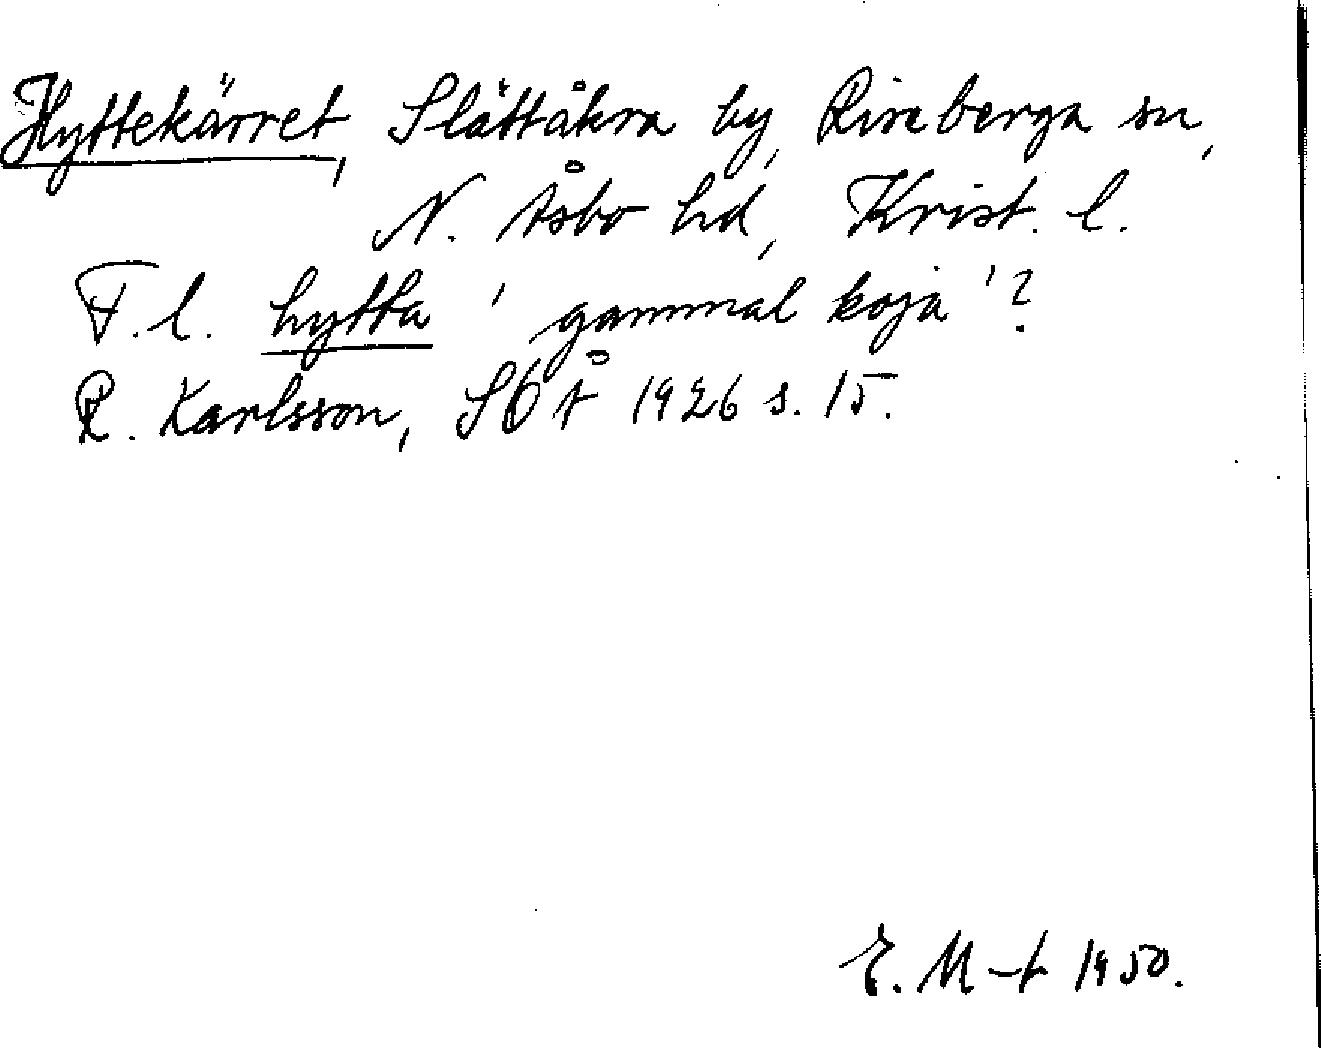 Hyttekärret, Slättåkra by, Riseberga sn,
N. Åsbo hd, Krist. l.
F. l. hytta 'gammal koja'?
R. Karlsson, SOÅ 1926 s. 15.
E. M-t 1950.